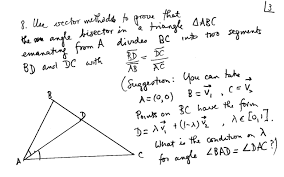 L3
8. Use vector methods to prove that
the angle bisector in a triangle △ABC
emanating from A divides BC into two segments
BD and DC with BD/AB = DC/AC
(Suggestion: You can take
A=(0,0) B=V⃗₁, C=V⃗₂
Points on BC have the form
D=λV⃗₁+(1-λ)V⃗₂, λ∈[0,1].
What is the condition on λ
for angle ∠BAD=∠DAC?)
B
D
A
C